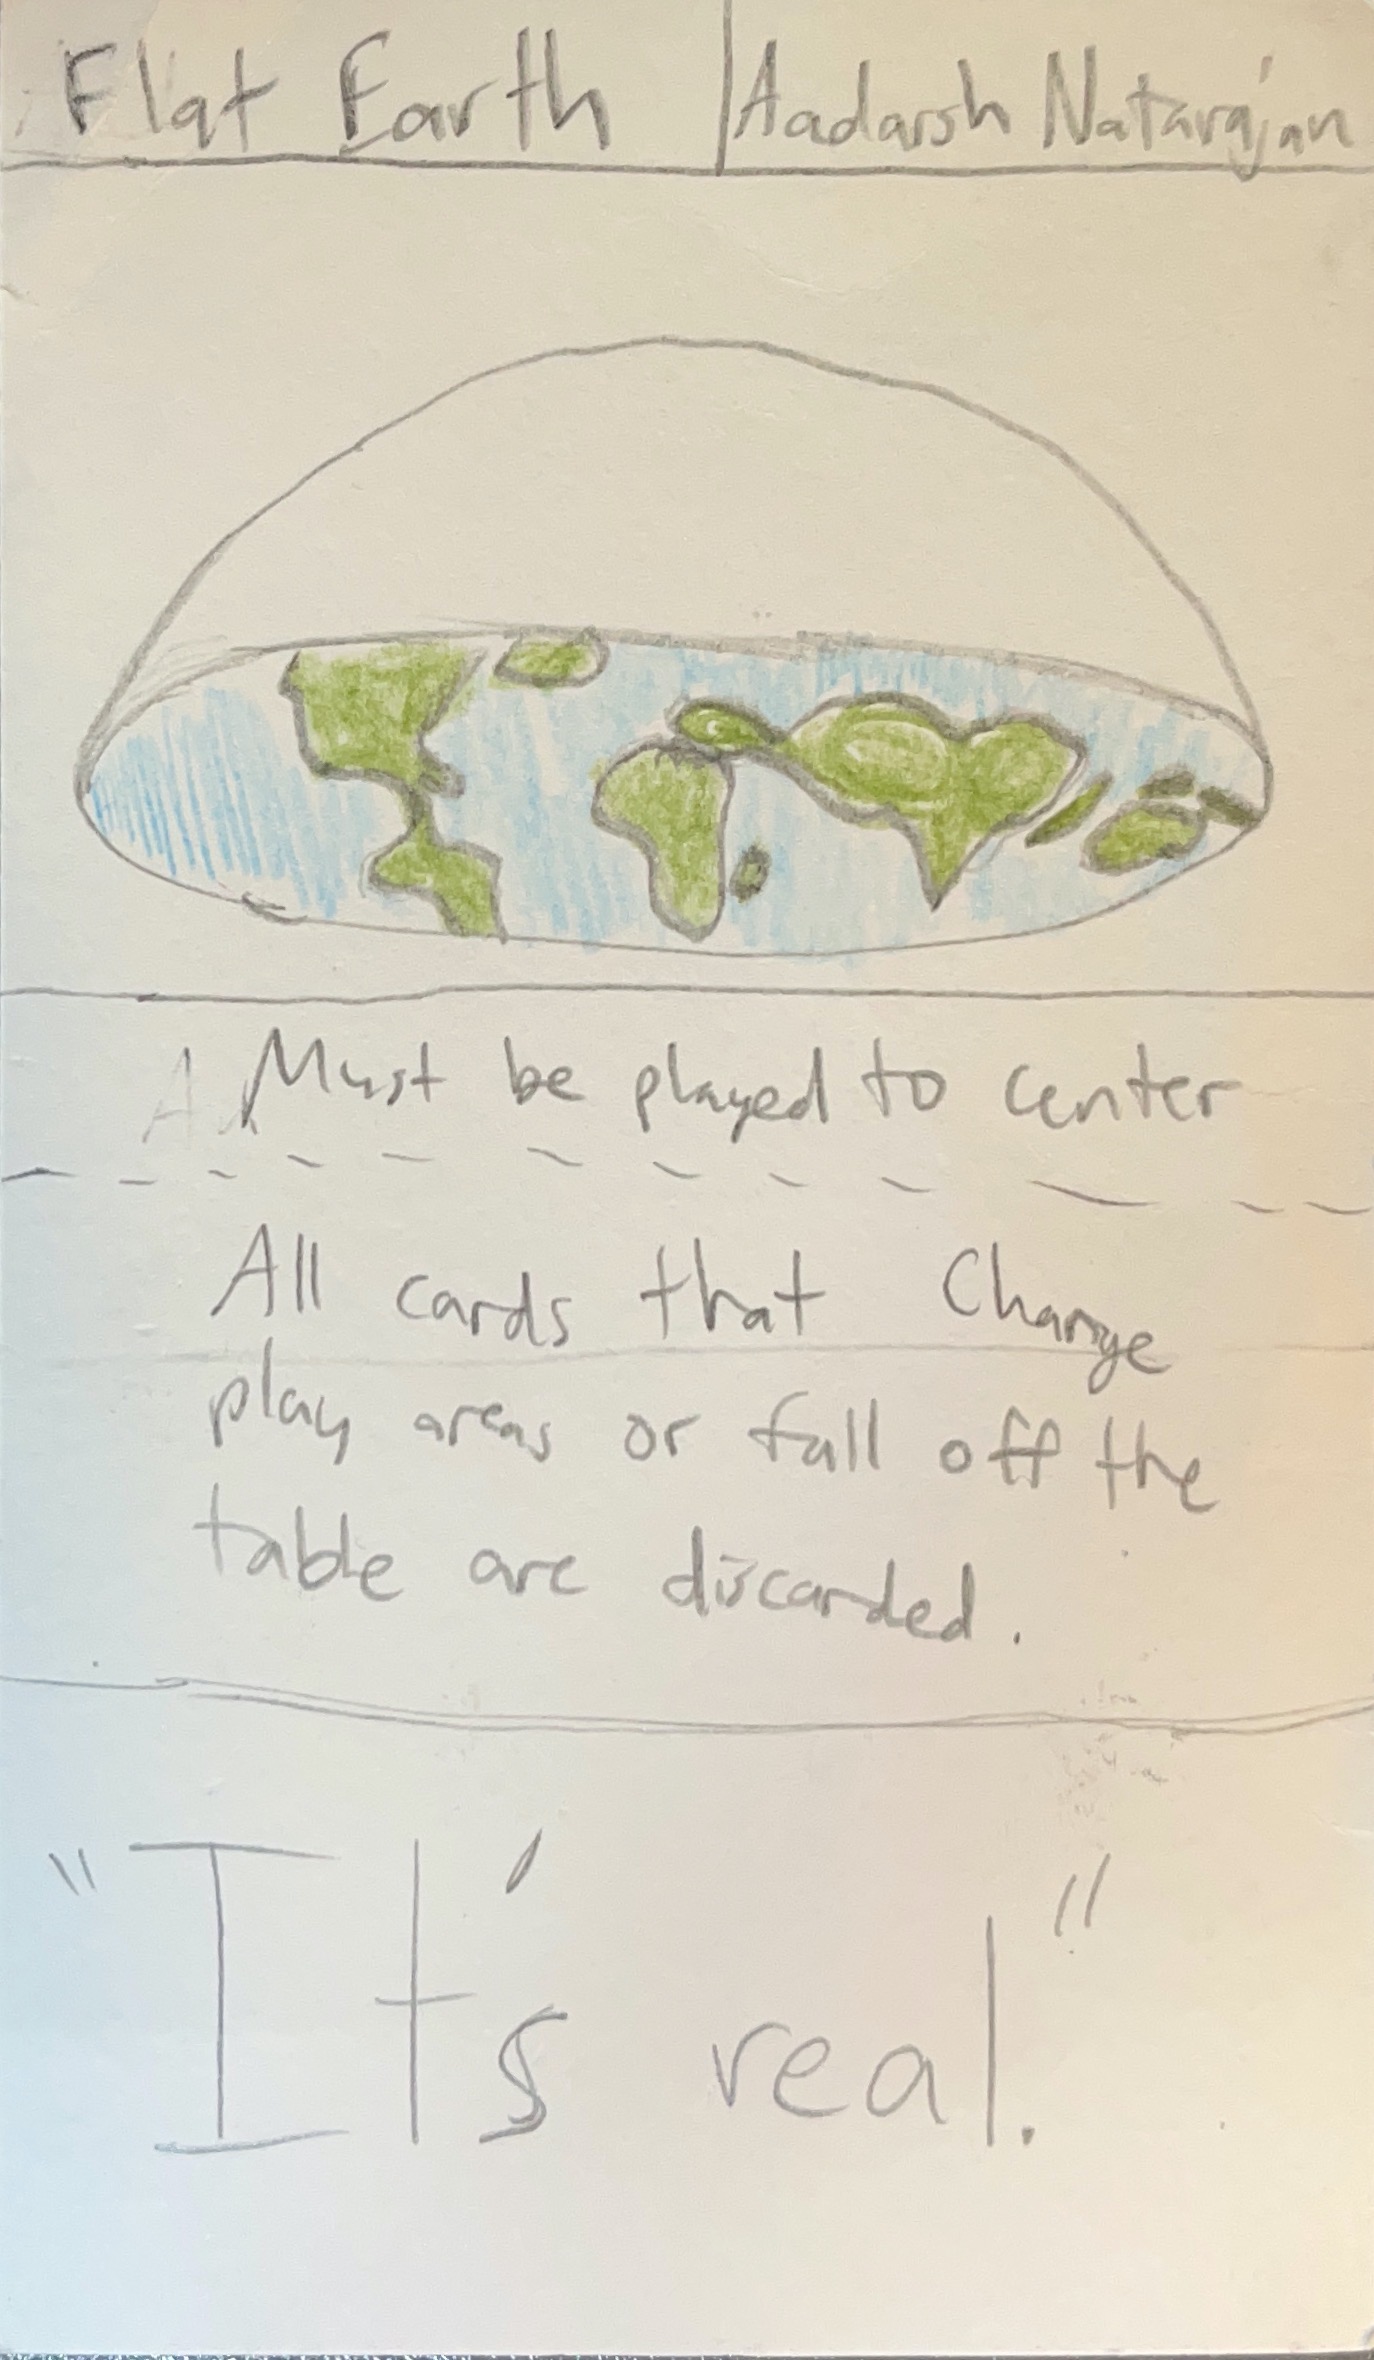 Flat Earth | Aadarsh Natarajan
Must be played to center
All cards that Change
play areas or fall off the
table are discarded.
"It's real."